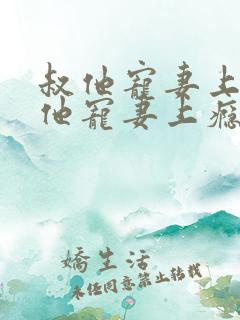 叔他寵妻上
他寵妻上癮
嬌生活
未經同意禁止轉載